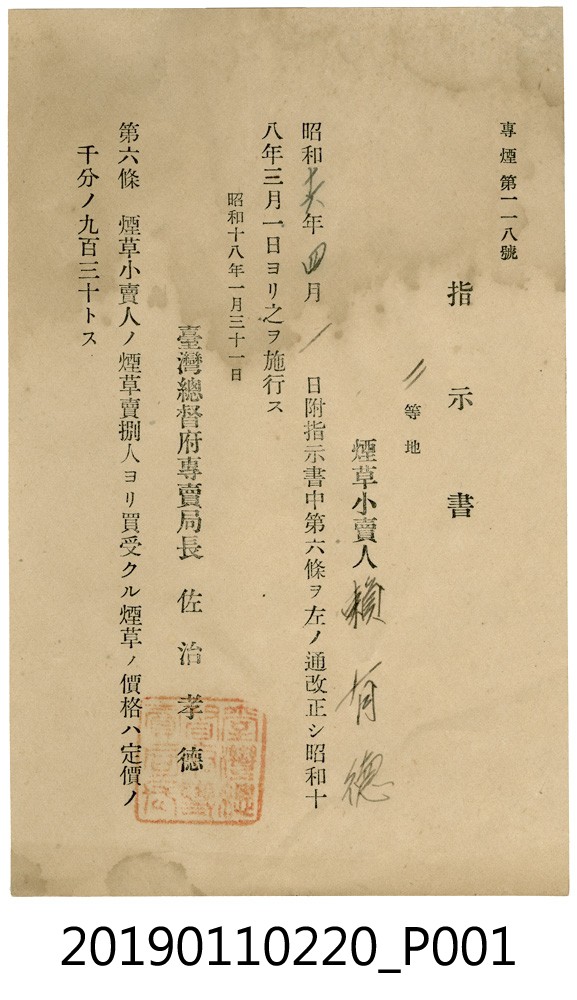 專煙第一一八號
指示書
二等地
煙草小賣人 賴有德
昭和十六年四月一日附指示書中第六條ヲ左ノ通改正シ昭和十
八年三月一日ヨリ之ヲ施行ス
昭和十八年一月三十一日
臺灣總督府專賣局長 佐治孝德
第六條 煙草小賣人ノ煙草賣捌人ヨリ買受クル煙草ノ價格ハ定價ノ
千分ノ九百三十トス
20190110220_P001